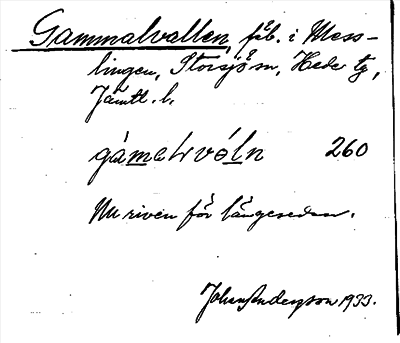 Gammalvallen, fäb. i Mess-
lingen, Storsjö sn, Hede tg,
Jämtl. l.
gámalvóln 260
Nu riven för långesedan.
Johan Anderzon 1933.